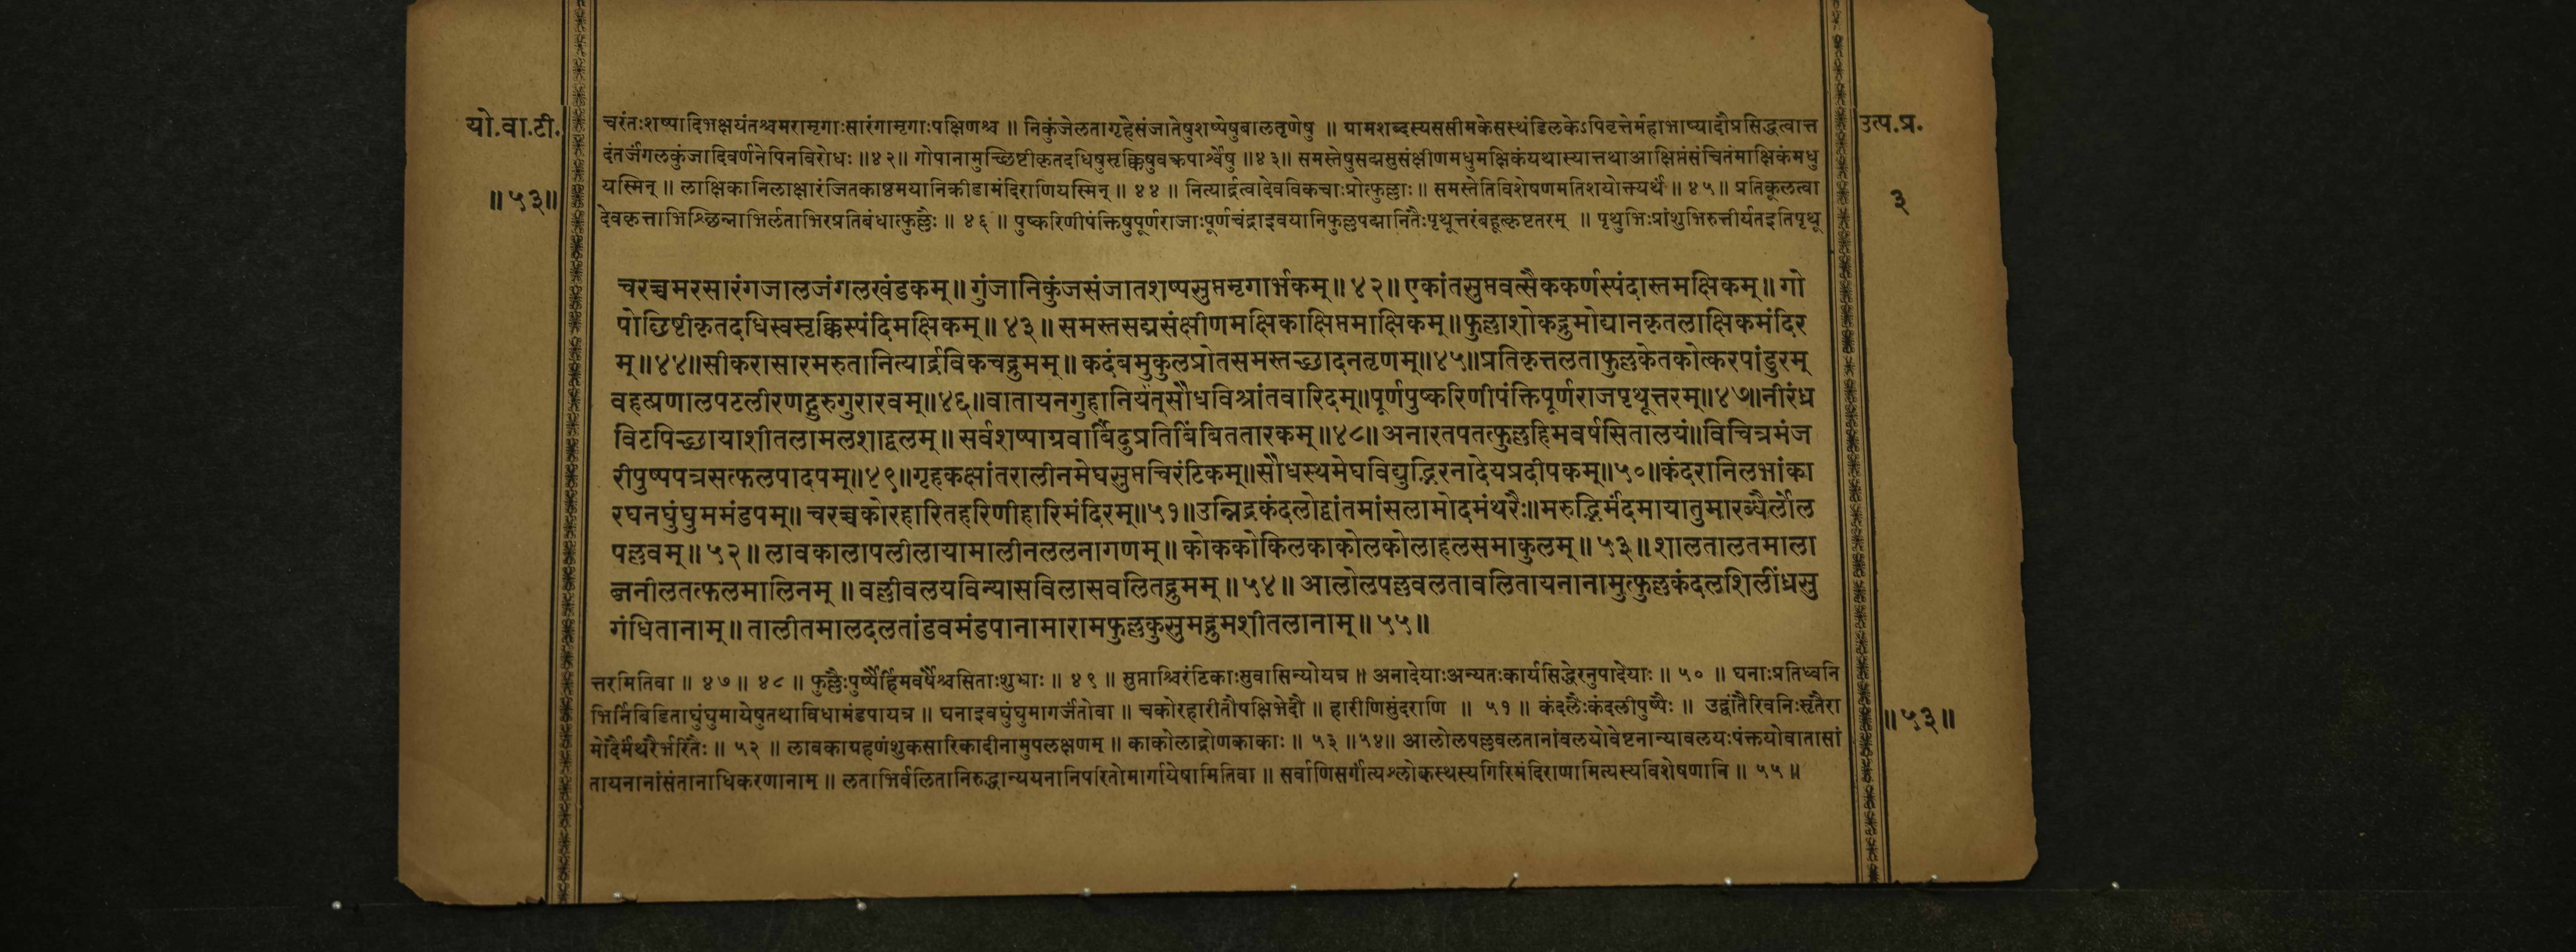 यो.वा.टी.
॥५३॥
चरंतःशष्पादिभक्षयंतश्चमरामृगाःसारंगामृगाःपक्षिणश्च ॥ निकुंजेलतागृहेसंजातेषुशष्पेषुबालतृणेषु ॥ ग्रामशब्दस्यससीमकेसस्थंडिलकेऽपिवृत्तेर्महाभाष्यादौप्रसिद्धत्वात्त
दंतर्जंगलकुंजादिवर्णनेपिनविरोधः ॥४२॥ गोपानामुच्छिष्टीकृतदधिषुसृक्किषुवक्त्रपार्श्वेषु ॥४३॥ समस्तेषुसद्मसुसंक्षीणमधुमक्षिकंयथास्यात्तथाआक्षिप्तंसंचितंमाक्षिकंमधु
यस्मिन् ॥ लाक्षिकानिलाक्षारंजितकाष्ठमयानिक्रीडामंदिराणियस्मिन् ॥ ४४ ॥ नित्यार्द्रत्वादेवविकचाःप्रोत्फुल्लाः ॥ समस्तेतिविशेषणमतिशयोक्त्यर्थं ॥ ४५ ॥ प्रतिकूलत्वा
देवकृत्ताभिश्छिन्नाभिर्लताभिरप्रतिबंधात्फुल्लैः ॥ ४६ ॥ पुष्करिणीपंक्तिषुपूर्णराजाःपूर्णचंद्राइवयानिफुल्लपद्मानितैःपृथूत्तरंबहूत्कृष्टतरम् ॥ पृथुभिःप्रांशुभिरुत्तीर्यतइतिपृथू
चरच्चमरसारंगजालजंगलखंडकम्॥ गुंजानिकुंजसंजातशष्पसुप्तमृगार्भकम्॥ ४२॥ एकांतसुप्तवत्सैककर्णस्पंदास्तमक्षिकम्॥ गो
पोच्छिष्टीकृतदधिस्वसृक्किस्पंदिमक्षिकम्॥ ४३॥ समस्तसद्मसंक्षीणमक्षिकाक्षिप्तमाक्षिकम्॥ फुल्लाशोकद्रुमोद्यानकृतलाक्षिकमंदिर
म्॥४४॥सीकरासारमरुतानित्यार्द्रविकचद्रुमम्॥ कदंबमुकुलप्रोतसमस्तच्छादनतृणम्॥४५॥प्रतिकृत्तलताफुल्लकेतकोत्करपांडुरम्
वहत्प्रणालपटलीरणद्गुरुगुरारवम्॥४६॥वातायनगुहानिर्यत्सौधविश्रांतवारिदम्॥पूर्णपुष्करिणीपंक्तिपूर्णराजपृथूत्तरम्॥४७॥नीरंध्र
विटपिच्छायाशीतलामलशाद्वलम्॥ सर्वशष्पाग्रवार्बिंदुप्रतिबिंबिततारकम्॥४८॥ अनारतपतत्फुल्लहिमवर्षसितालयं॥विचित्रमंज
रीपुष्पपत्रसत्फलपादपम्॥४९॥गृहकक्षांतरालीनमेघसुप्तचिरंटिकम्॥सौधस्थमेघविद्युद्भिरनादेयप्रदीपकम्॥५०॥कंदरानिलभांका
रघनघुंघुममंडपम्॥ चरच्चकोरहारितहरिणीहारिमंदिरम्॥५१॥उन्निद्रकंदलोद्वांतमांसलामोदमंथरैः॥मरुद्भिर्मंदमायातुमारब्धैर्लोल
पल्लवम्॥ ५२॥ लावकालापलीलायामालीनललनागणम्॥ कोककोकिलकाकोलकोलाहलसमाकुलम्॥ ५३॥ शालतालतमाला
ब्जनीलतत्फलमालिनम् ॥ वल्लीवलयविन्यासविलासवलितद्रुमम् ॥ ५४॥ आलोलपल्लवलतावलितायनानामुत्फुल्लकंदलशिलींध्रसु
गंधितानाम्॥ तालीतमालदलतांडवमंडपानामारामफुल्लकुसुमद्रुमशीतलानाम्॥ ५५॥
त्तरमितिवा ॥ ४७॥ ४८ ॥ फुल्लैःपुष्पैर्हिमवर्षैश्चसिताःशुभ्राः ॥ ४९ ॥ सुप्ताश्चिरंटिकाःसुवासिन्योयत्र ॥ अनादेयाःअन्यतःकार्यसिद्धेरनुपादेयाः ॥ ५० ॥ घनाःप्रतिध्वनि
भिर्निबिडिताघुंघुमायेषुतथाविधामंडपायत्र ॥ घनाइवघुंघुमागर्जंतोवा ॥ चकोरहारीतौपक्षिभेदौ ॥ हारीणिसुंदराणि ॥ ५१ ॥ कंदलैःकंदलीपुष्पैः ॥ उद्वांतैरिवनिःसृतैरा
मोदैर्मंथरैर्भरितैः ॥ ५२ ॥ लावकाग्रहणंशुकसारिकादीनामुपलक्षणम् ॥ काकोलाद्रोणकाकाः ॥ ५३ ॥५४॥ आलोलपल्लवलतानांवलयोवेष्टनान्यावलयःपंक्तयोवातासां
तायनानांसंतानाधिकरणानाम् ॥ लताभिर्वलितानिरुद्धान्ययनानिपरितोमार्गायेषामितिवा ॥ सर्वाणिसर्गांत्यश्लोकस्थस्यगिरिमंदिराणामित्यस्यविशेषणानि ॥ ५५ ॥
उत्प.प्र.
३
॥५३॥